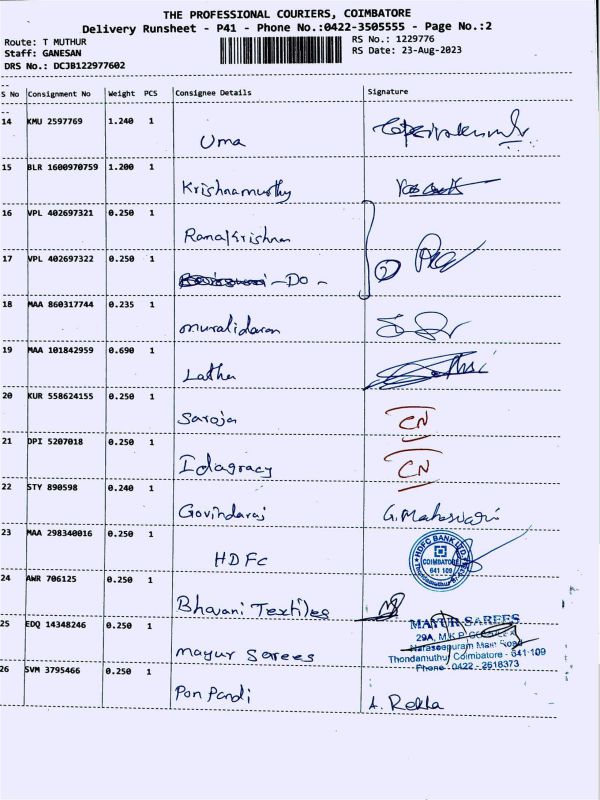 THE PROFESSIONAL COURIERS, COIMBATORE
Delivery Runsheet - P41 - Phone No.:0422-3505555 - Page No.:2
Route: T MUTHUR RS No.: 1229776
Staff: GANESAN RS Date: 23-Aug-2023
DRS No.: DCJB122977602
S No Consignment No Weight PCS Consignee Details Signature
14 KMU 2597769 1.240 1
Uma
15 BLR 1600970759 1.200 1
Krishnamurthy
16 VPL 402697321 0.250 1
Ramakrishnan
17 VPL 402697322 0.250 1
- Do - 2
18 MAA 860317744 0.235 1
Muralidaran
19 MAA 101842959 0.690 1
Latha
20 KUR 558624155 0.250 1
Saroja CN
21 DPI 5207018 0.250 1
Idagracy CN
22 STY 890598 0.240 1
Govindaraj G. Maheswari
23 MAA 298340016 0.250 1
HDFC HDFC BANK LTD. COIMBATORE 641 109
24 AWR 706125 0.250 1
Bhavani Textiles
25 EDQ 14348246 0.250 1 MAYUR SAREES
29A, M.K.P.
Mayur Sarees Naraseepuram Main Road
Thondamuthur, Coimbatore - 641 109
Phone : 0422 - 2618373
26 SVM 3795466 0.250 1
Pon Pandi A. Rekha